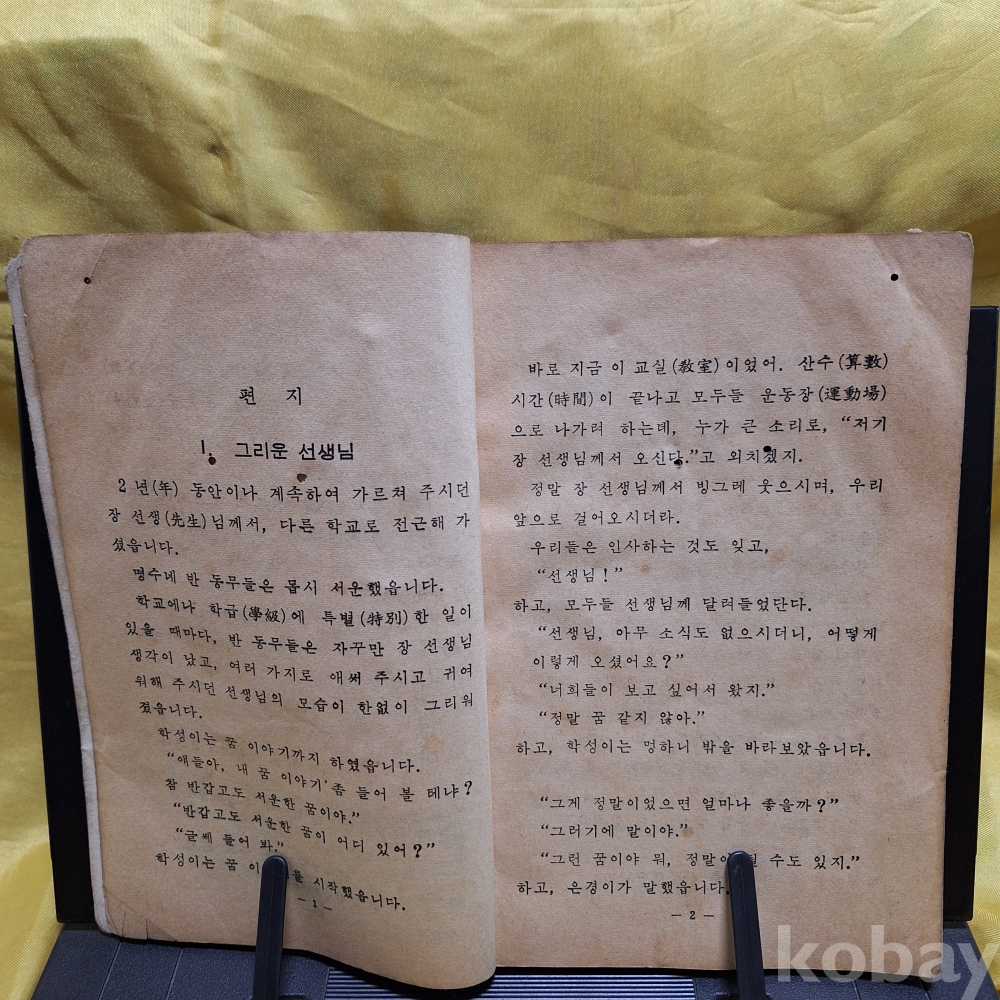 편 지
1. 그리운 선생님
2년(年) 동안이나 계속하여 가르쳐 주시던
장 선생(先生)님께서, 다른 학교로 전근해 가
셨읍니다.
명수네 반 동무들은 몹시 서운했읍니다.
학교에나 학급(學級)에 특별(特別)한 일이
있을 때마다, 반 동무들은 자꾸만 장 선생님
생각이 났고, 여러 가지로 애써 주시고 귀여
워해 주시던 선생님의 모습이 한없이 그리워
졌읍니다.
학성이는 꿈 이야기까지 하였읍니다.
“얘들아, 내 꿈 이야기 좀 들어 볼 테냐?
참 반갑고도 서운한 꿈이야.”
“반갑고도 서운한 꿈이 어디 있어?”
“글쎄 들어 봐.”
학성이는 꿈 이 를 시작했읍니다.
— 1 —
바로 지금 이 교실(敎室)이었어. 산수(算數)
시간(時間)이 끝나고 모두들 운동장(運動場)
으로 나가려 하는데, 누가 큰 소리로, “저기
장 선생님께서 오신다.”고 외치겠지.
정말 장 선생님께서 빙그레 웃으시며, 우리
앞으로 걸어오시더라.
우리들은 인사하는 것도 잊고,
“선생님!”
하고, 모두들 선생님께 달려들었단다.
“선생님, 아무 소식도 없으시더니, 어떻게
이렇게 오셨어요?”
“너희들이 보고 싶어서 왔지.”
“정말 꿈 같지 않아.”
하고, 학성이는 멍하니 밖을 바라보았읍니다.
“그게 정말이었으면 얼마나 좋을까?”
“그러기에 말이야.”
“그런 꿈이야 뭐, 정말이 될 수도 있지.”
하고, 은경이가 말했읍니다.
— 2 —
kobay